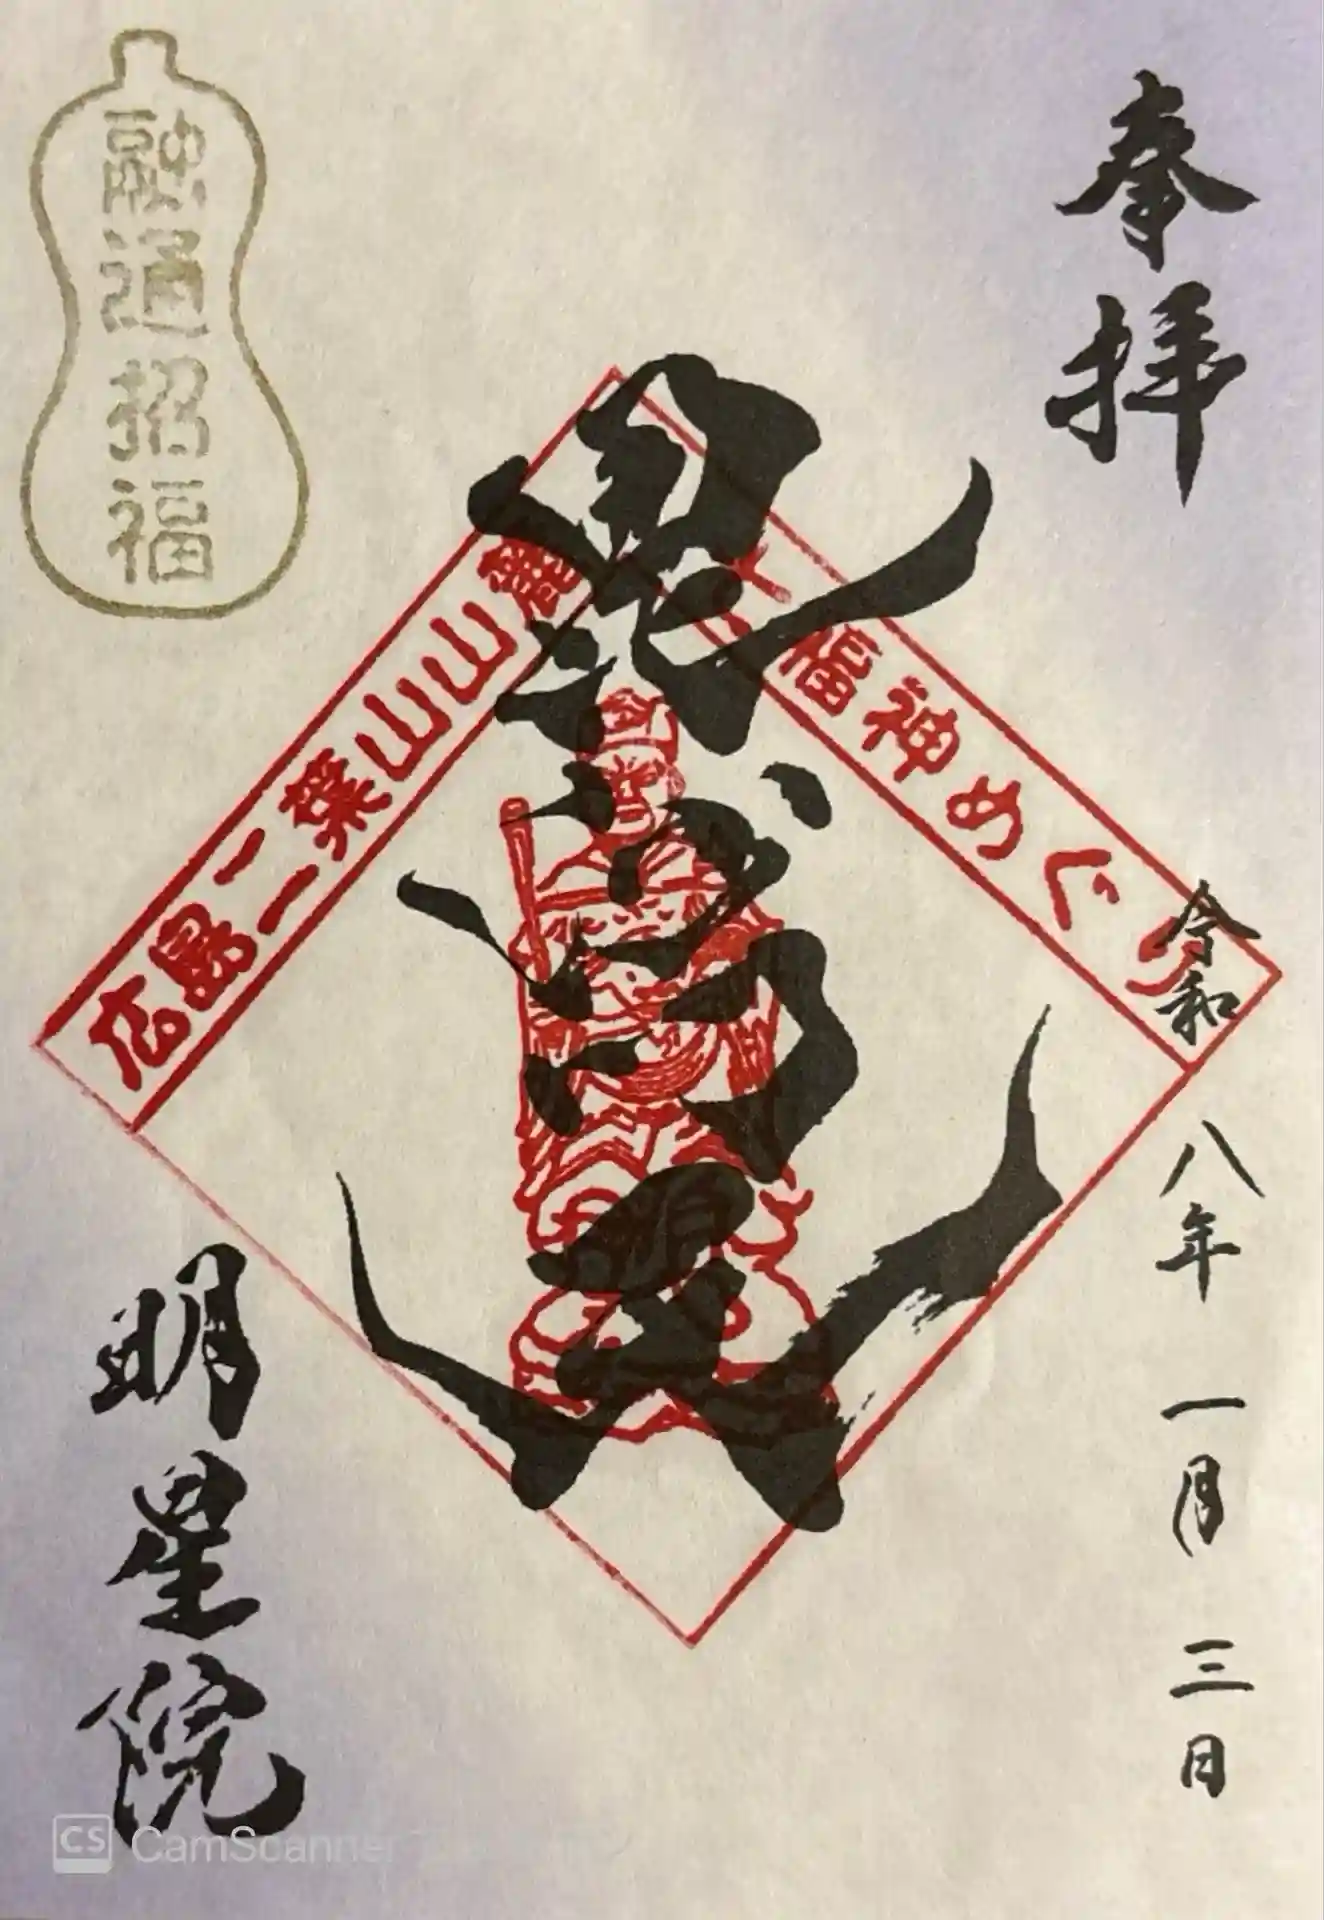 奉拝
令和八年一月三日
毘沙門天
七福神めぐり
広島二葉山山麓
融通招福
明星院
CS CamScanner